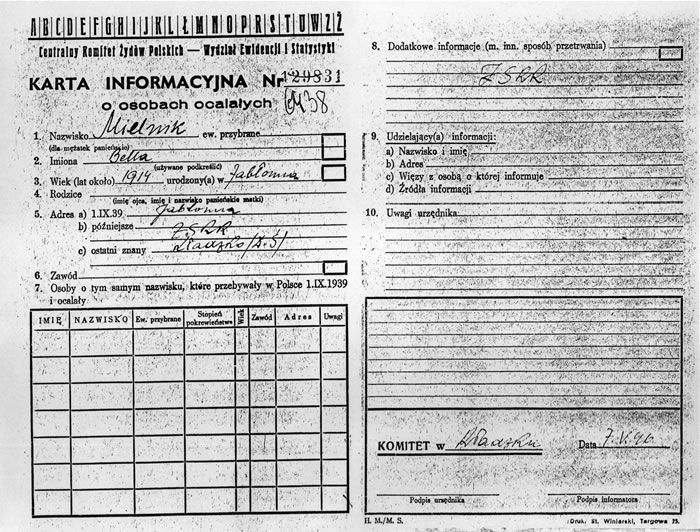 A B C D E F G H I J K L Ł M N O P R S T U W Z Ż
Centralny Komitet Żydów Polskich — Wydział Ewidencji i Statystyki
KARTA INFORMACYJNA Nr 129831
o osobach ocalałych
1. Nazwisko Mielnik ew. przybrane
(dla mężatek panieńskie)
2. Imiona Bella
(używane podkreślić)
3. Wiek (lat około) 1914 urodzony(a) w Jabłonna
4. Rodzice
(imię ojca, imię i nazwisko panieńskie matki)
5. Adres a) 1.IX.39 Jabłonna
b) późniejsze ZSRR
c) ostatni znany Kładzko (D.Ś)
6. Zawód
7. Osoby o tym samym nazwisku, które przebywały w Polsce 1.IX.1939
i ocalały
IMIĘ NAZWISKO Ew. przybrane Stopień pokrewieństwa Wiek Zawód Adres Uwagi
8. Dodatkowe informacje (m. inn. sposób przetrwania)
ZSRR
9. Udzielający(a) informacji:
a) Nazwisko i imię
b) Adres
c) Więzy z osobą o której informuje
d) Źródła informacji
10. Uwagi urzędnika
KOMITET w Kładzku Data 7.V.46
Podpis urzędnika Podpis informatora
H. M./M. S. Druk. St. Winiarski, Targowa 75.